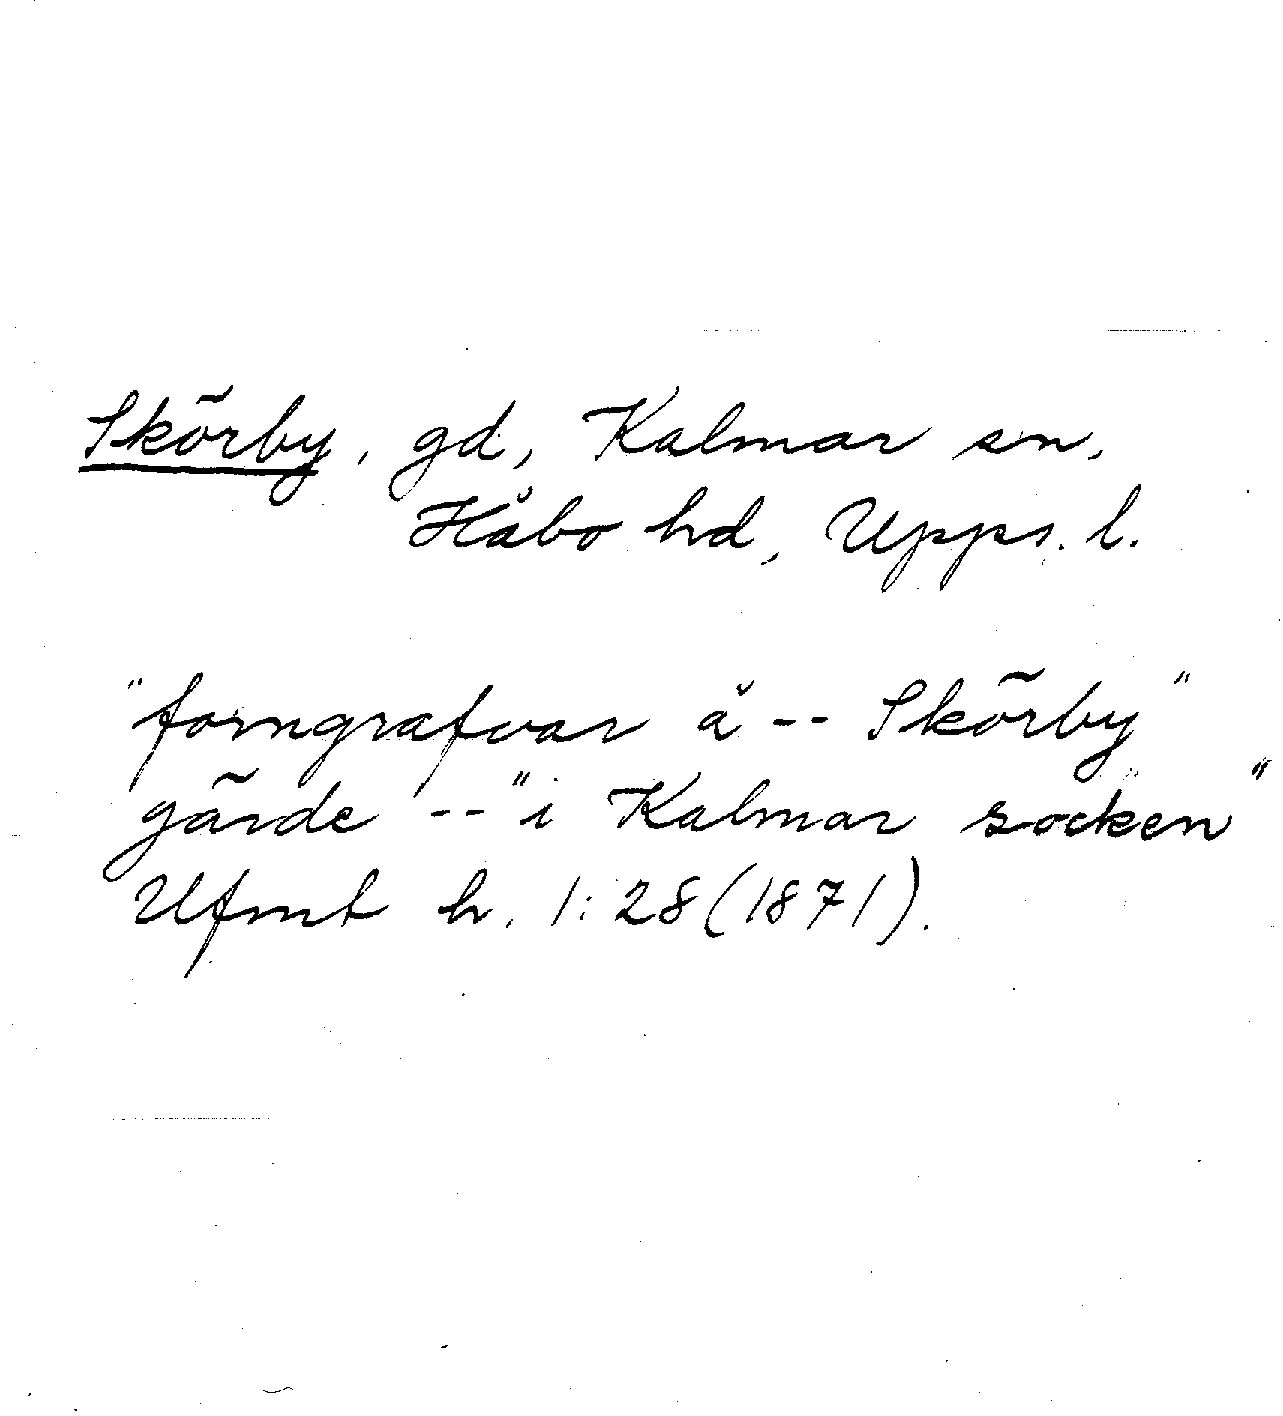 Skörby, gd, Kalmar sn,
Håbo hd, Upps. l.
"forngrafvar å -- Skörby"
gärde --" i Kalmar socken"
Ufmt h. 1:28 (1871).